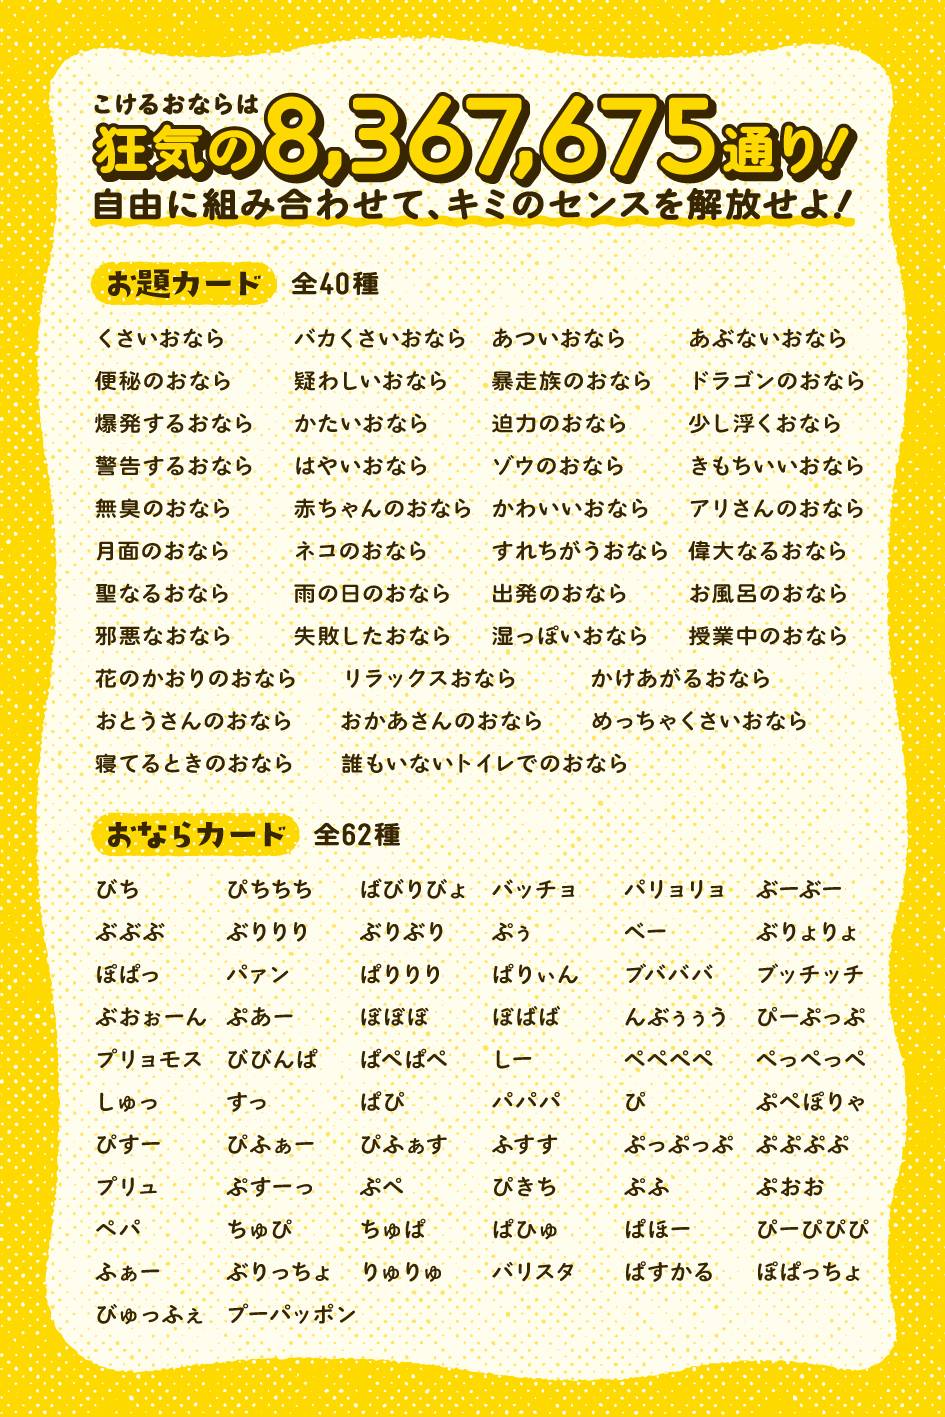 こけるおならは
狂気の8,367,675通り!
自由に組み合わせて、キミのセンスを解放せよ!
お題カード 全40種
くさいおなら バカくさいおなら あついおなら あぶないおなら
便秘のおなら 疑わしいおなら 暴走族のおなら ドラゴンのおなら
爆発するおなら かたいおなら 迫力のおなら 少し浮くおなら
警告するおなら はやいおなら ゾウのおなら きもちいいおなら
無臭のおなら 赤ちゃんのおなら かわいいおなら アリさんのおなら
月面のおなら ネコのおなら すれちがうおなら 偉大なるおなら
聖なるおなら 雨の日のおなら 出発のおなら お風呂のおなら
邪悪なおなら 失敗したおなら 湿っぽいおなら 授業中のおなら
花のかおりのおなら リラックスおなら かけあがるおなら
おとうさんのおなら おかあさんのおなら めっちゃくさいおなら
寝てるときのおなら 誰もいないトイレでのおなら
おならカード 全62種
びち ぴちちち ばびりびょ バッチョ パリョリョ ぶーぶー
ぶぶぶ ぶりりり ぶりぶり ぷぅ べー ぶりょりょ
ぽぱっ パァン ぱりりり ぱりぃん ブババババ ブッチッチ
ぶおぉーん ぷあー ぼぼぼ ぼばば んぶぅぅう ぴーぷっぷ
プリョモス びびんぱ ぱぺぱぺ しー ぺぺぺぺ ぺっぺっぺ
しゅっ すっ ぱぴ パパパ ぴ ぷぺぽりゃ
ぴすー ぴふぁー ぴふぁす ふすす ぷっぷっぷ ぷぷぷぷ
プリュ ぷすーっ ぷぺ ぴきち ぷふ ぷおお
ペパ ちゅぴ ちゅぱ ぱひゅ ぱほー ぴーぴぴぴ
ふぁー ぶりっちょ りゅりゅ バリスタ ぱすかる ぽぱっちょ
びゅっふぇ プーパッポン